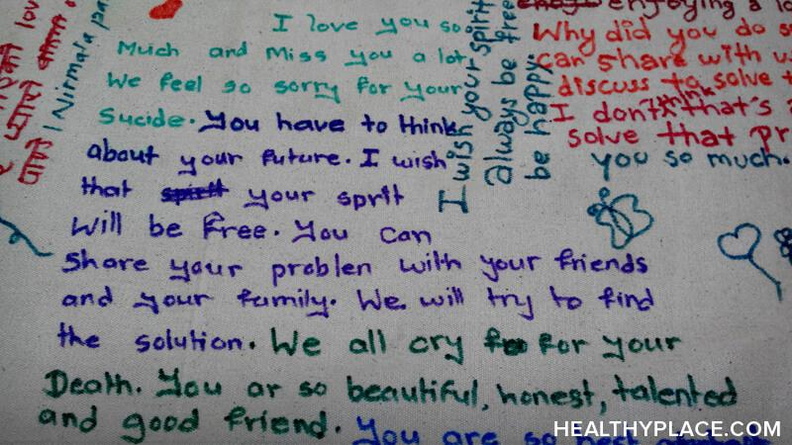 I love you so
Much and Miss you a lot
We feel so sorry for your
Sucide. You have to think
about your future. I wish
that your sprit
will be free. You can
Share your problen with your friends
and your family. We will try to find
the solution. We all cry for your
Death. You ar so beautiful, honest, talented
and good friend. You are so best
I wish your spirit
always be free
be happy
enjoying a lo
Why did you do s
can share with us
discuss to solve t
I dont think that's a
solve that pr
you so much.
Nirmala
HEALTHYPLACE.COM